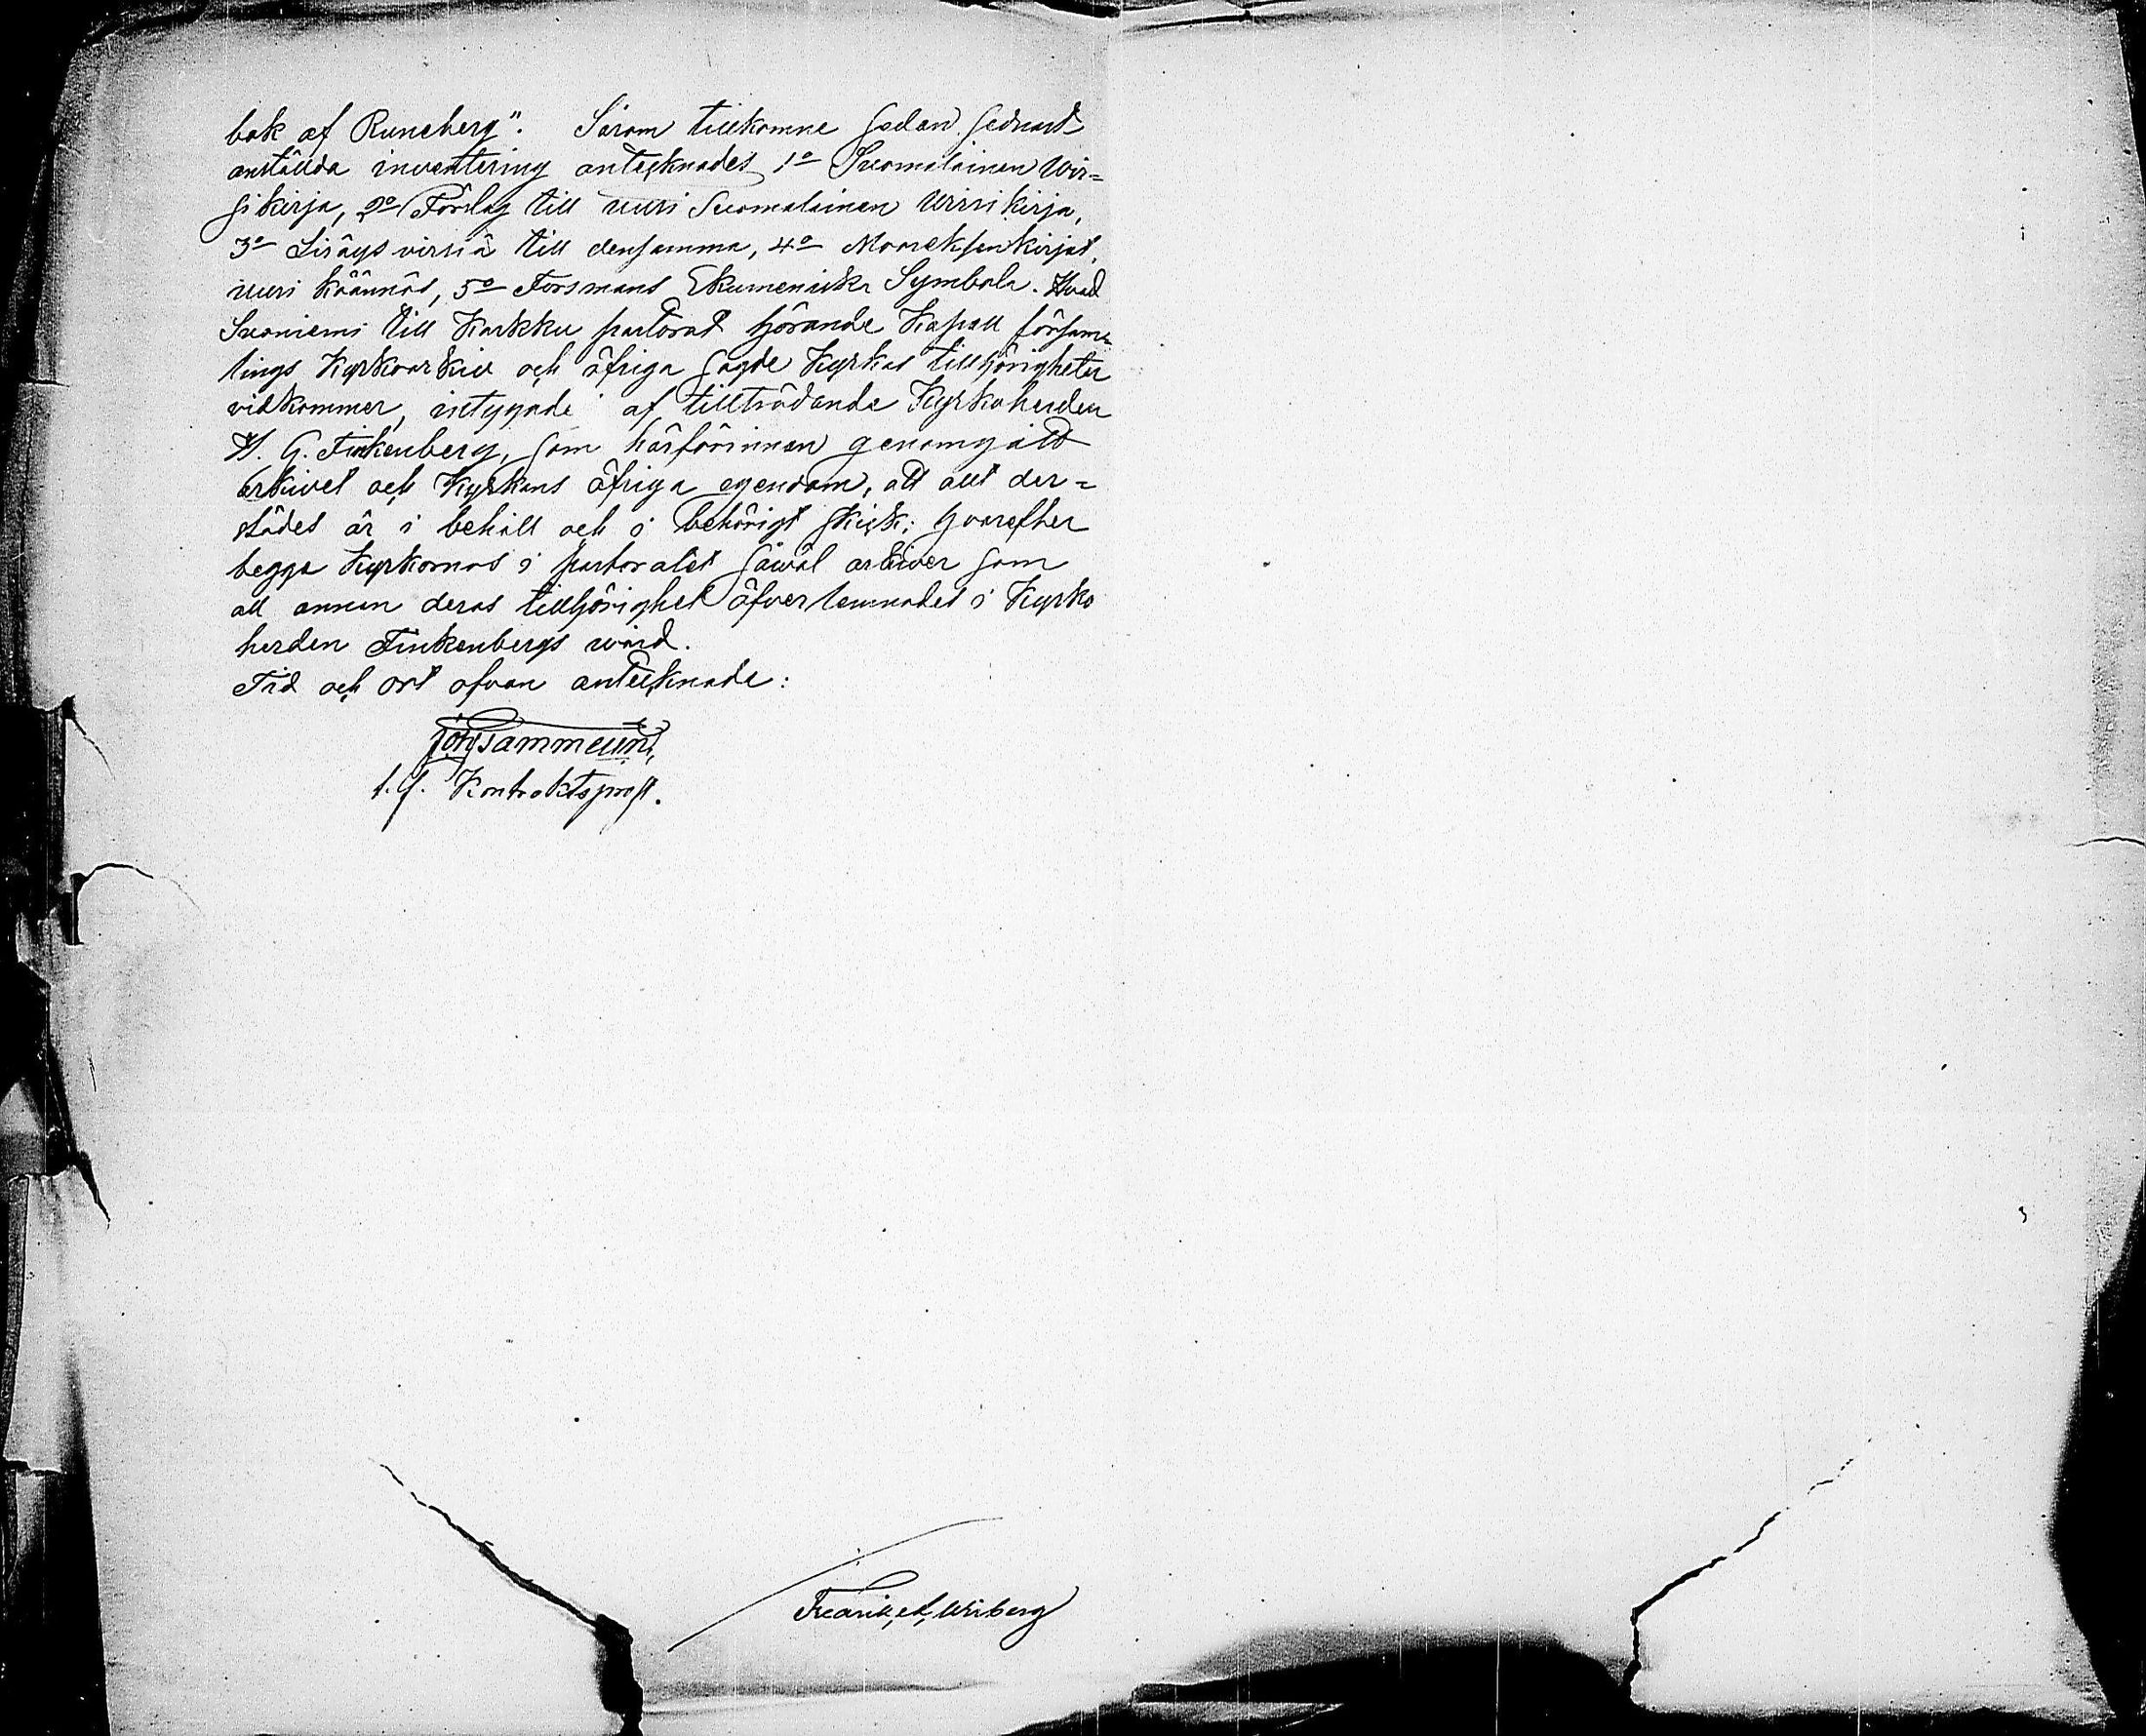 bok af Runeberg". Såsom tillkomne sedan sednast
anställda inventering antecknades 1o Suomalainen Wir=
sikirja, 2o Förslag till uusi Suomalainen Virsikirja,
3o Lisäys virsiä till densamma, 4o Manuksenkirjat,
uusi käännös, 5o Forsmans Ekumeniska Symbola. Hvad
Suoniemi till Karkku pastorat hörande Kapell försam=
lings Kyrkoarkiv och öfriga sagde Kyrkas tillhörigheter
vidkommer, intygade af tillträdande Kyrkoherden
H. G. Finkenberg, som härförinnan genomgått
arkivet och Kyrkans öfriga egendom, att allt der=
städes är i behåll och i behörigt skick; hvarefter
begge Kyrkornas i pastoratet såwäl arkiver som
all annan deras tillhörighet öfverlemnades i Kyrko
herden Finkenbergs wård.
Tid och ort ofvan antecknade:
t.f. Kontraktsprost.
Wiberg